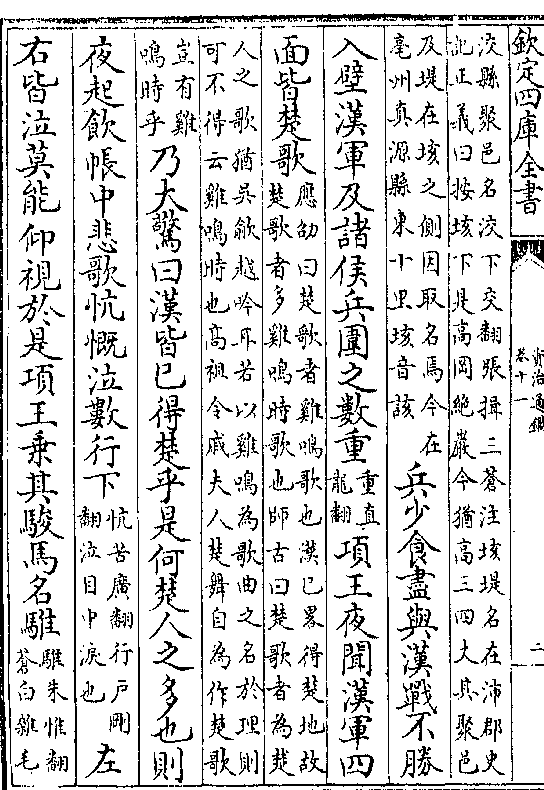 欽定四庫全書
資治通鑑
卷十一
二
洨縣聚邑名洨下交翻張揖三蒼注垓堤名在沛郡史
記正義曰按垓下是高岡絶巖今猶高三四丈其聚邑
及堤在垓之側因取名焉今在
亳州真源縣東十里垓音該
兵少食盡與漢戰不勝
入壁漢軍及諸侯兵圍之數重
重直
龍翻
項王夜聞漢軍四
面皆楚歌
應劭曰楚歌者雞鳴歌也漢已畧得楚地故
楚歌者多雞鳴時歌也師古曰楚歌者為楚
人之歌猶吳歈越吟耳若以雞鳴為歌曲之名於理則
可不得云雞鳴時也高祖令戚夫人楚舞自為作楚歌
豈有雞
鳴時乎
乃大驚曰漢皆已得楚乎是何楚人之多也則
夜起飲帳中悲歌忼慨泣數行下
忼苦廣翻行戶剛
翻泣目中淚也
左
右皆泣莫能仰視於是項王乗其駿馬名騅
騅朱惟翻
蒼白雜毛